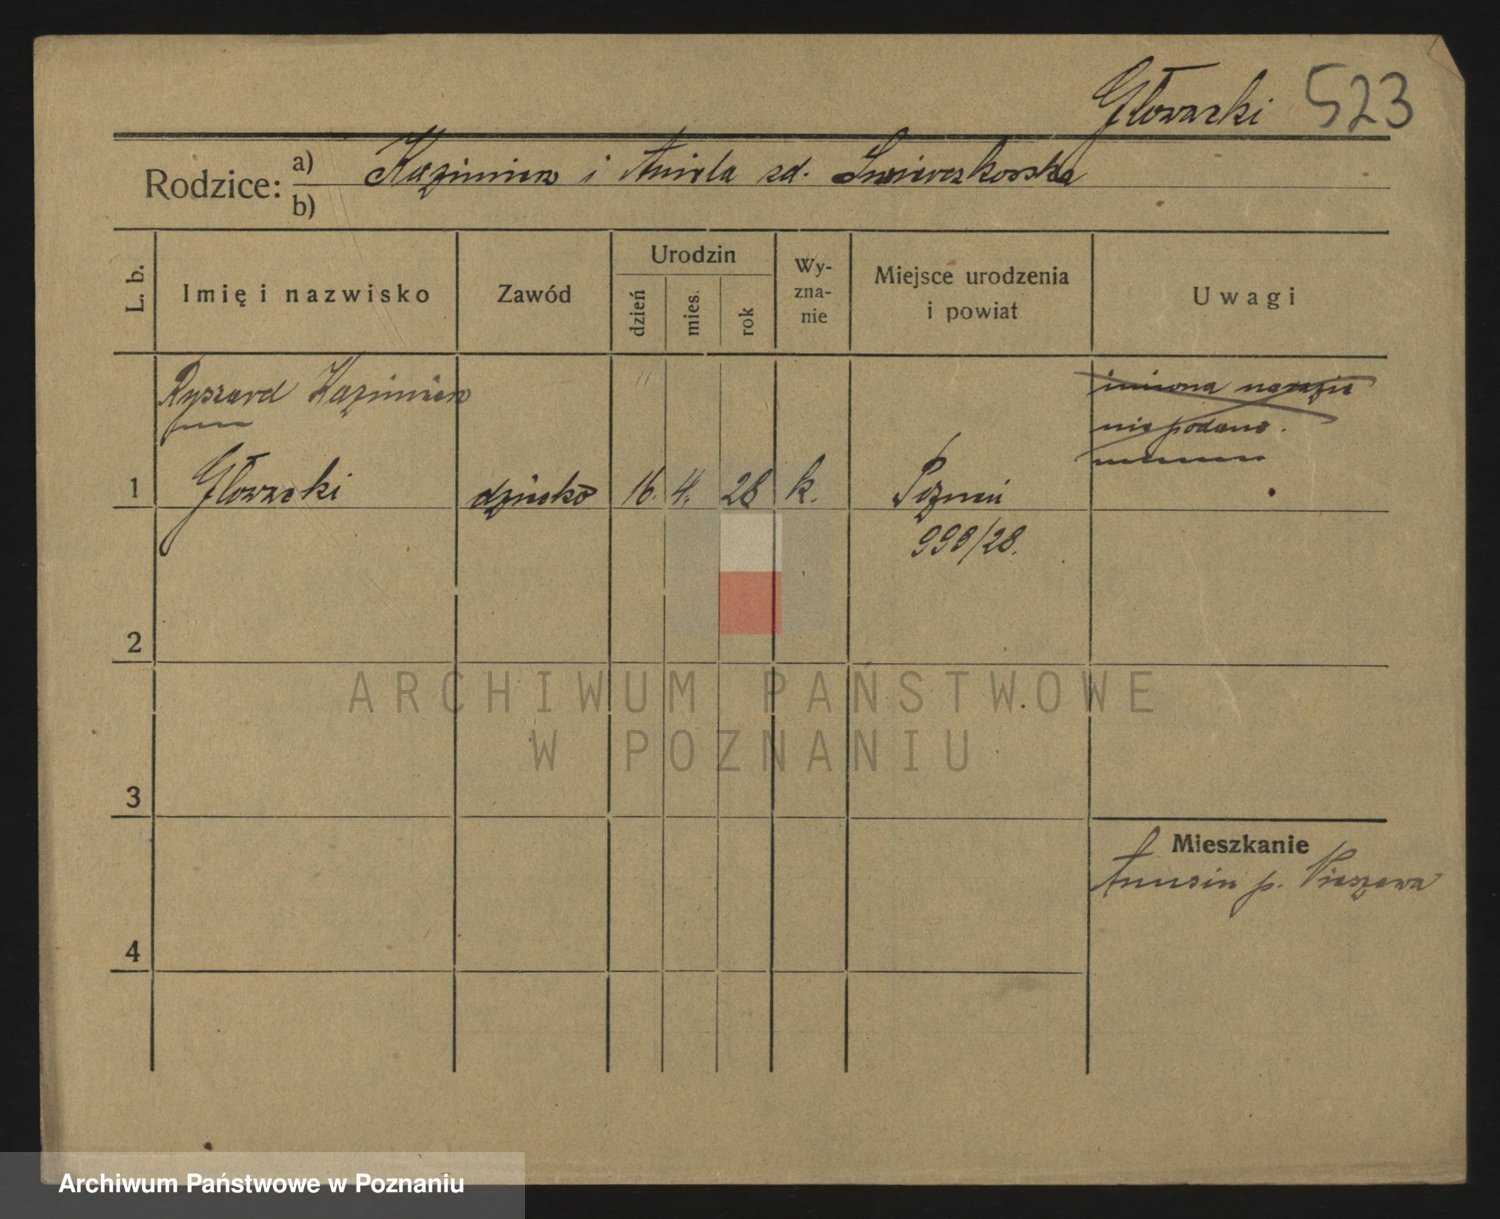 Głowacki 523
Rodzice: a) Kazimierz i Aniela zd.
b)
L. b.
Imię i nazwisko
Zawód
Urodzin
dzień
mies.
rok
Wy-
zna-
nie
Miejsce urodzenia
i powiat
Uwagi
Ryszard Kazimierz
imiona narazie
nie podano.
1 Głowacki dziecko 16. 4. 28 k. Poznań
998/28.
2
ARCHIWUM PAŃSTWOWE
W POZNANIU
3
Mieszkanie
p.
4
Archiwum Państwowe w Poznaniu